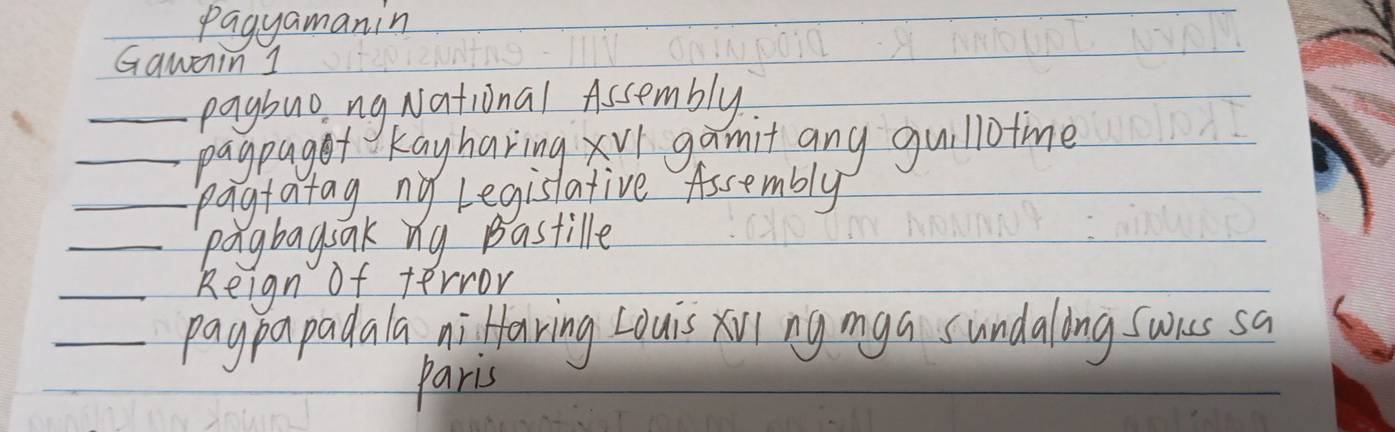 Pagyamanin
Gawain 1
____ pagbuo ng National Assembly
____ pagpugot kay haring XVI gamit any guillotine
____ pagtatag ng Legislative Assembly
____ pagbagsak ng Bastille
____ Reign Of terror
____ pagpapadala ni Haring Louis XVI ng mga sundalong Swiss sa
Paris